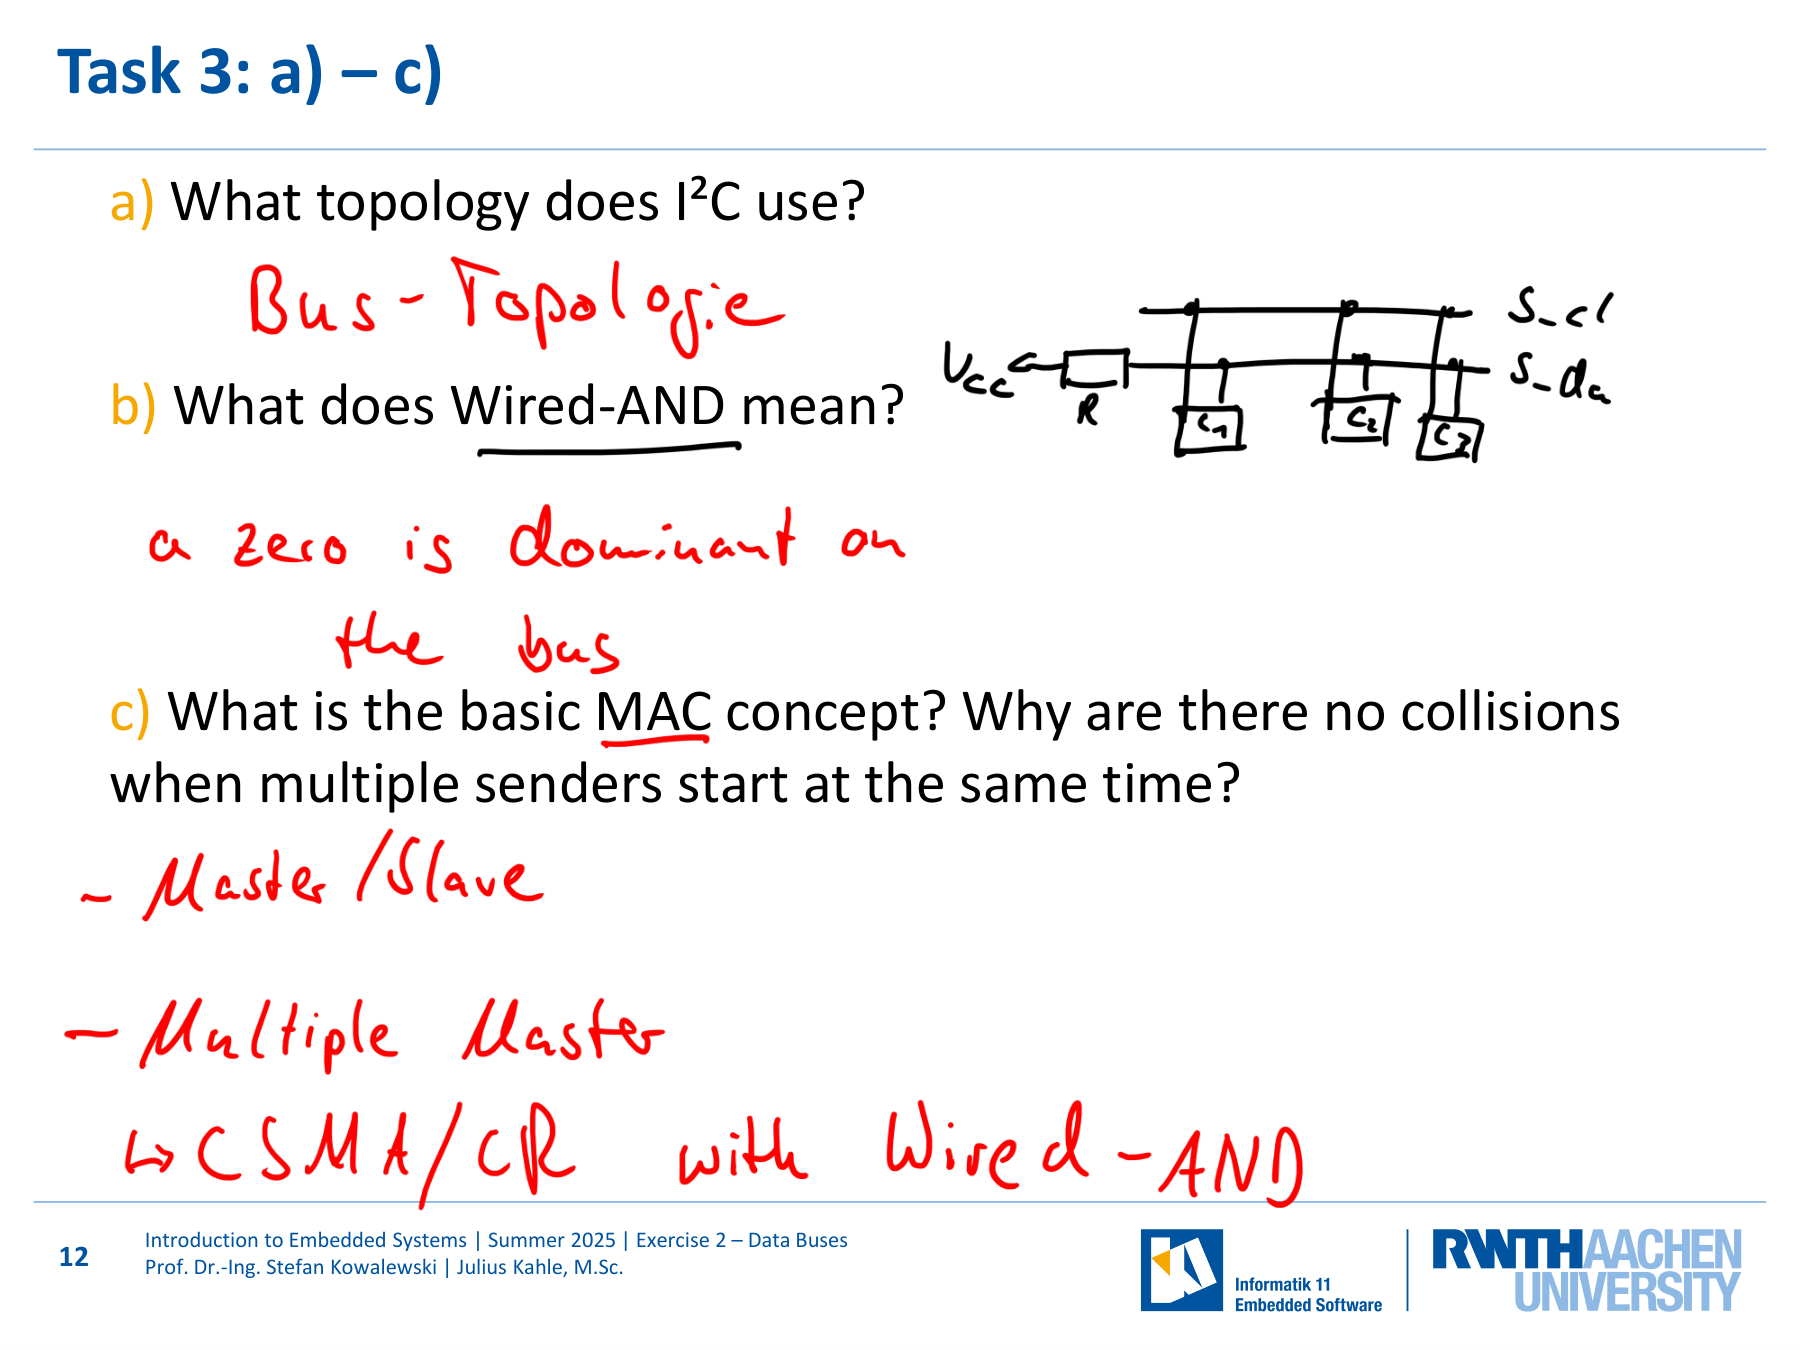 Task 3: a) – c)
a) What topology does I²C use?
Bus-Topologie
S_cl
Vcc
R
S_da
C1
C2
C3
b) What does Wired-AND mean?
a zero is dominant on
the bus
c) What is the basic MAC concept? Why are there no collisions
when multiple senders start at the same time?
- Master/Slave
- Multiple Master
↳ CSMA/CR with Wired-AND
12
Introduction to Embedded Systems | Summer 2025 | Exercise 2 – Data Buses
Prof. Dr.-Ing. Stefan Kowalewski | Julius Kahle, M.Sc.
Informatik 11
Embedded Software
RWTHAACHEN
UNIVERSITY